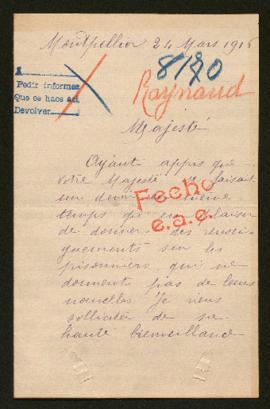 Montpellier 24 Mars 1916
8120
Raynaud
Pedir informes
Que se hace así
Devolver
Majesté
Ayant appris que
votre Majesté se faisait
un devoir en même
temps qu'un plaisir
de donner des rensei
gnements sur les
prisonniers qui ne
donnent pas de leurs
nouvelles je viens
solliciter de sa
haute bienveillance
Fecho
e.a.e.